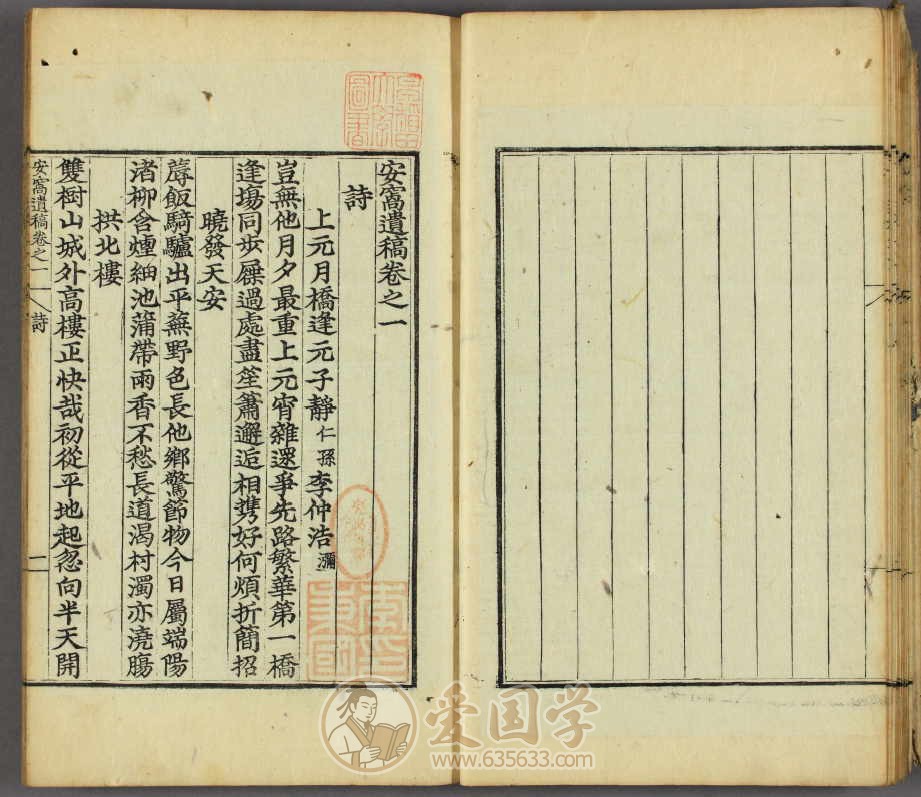 安窩遺稿卷之一
詩
上元月橋逢元子靜仁孫李仲浩瀰
豈無他月夕最重上元宵雜遝爭先路繁華第一橋
逢場同步屧過處盡笙簫邂逅相携好何煩折簡招
曉發天安
蓐飯騎驢出平蕪野色長他鄉驚節物今日屬端陽
渚柳含煙細池蒲帶雨香不愁長道渴村濁亦澆腸
拱北樓
雙樹山城外高樓正快哉初從平地起忽向半天開
安窩遺稿卷之一 詩 一
爱国学
www.635633.com